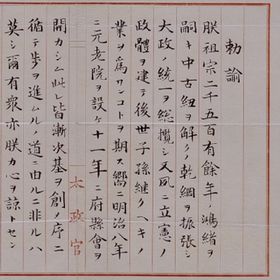 勅諭
朕祖宗二千五百有餘年ノ鴻緒ヲ
嗣キ中古紐ヲ解クノ乾綱ヲ振張シ
大政ノ統一ヲ總攬シ又夙ニ立憲ノ
政體ヲ建テ後世子孫継クヘキノ
業ヲ為サンコトヲ期ス嚮ニ明治八年
ニ元老院ヲ設ケ十一年ニ府縣會ヲ
太政官
開カシム此レ皆漸次基ヲ創メ序ニ
循テ歩ヲ進ムルノ道ニ由ルニ非サルハ
莫シ爾有衆亦朕カ心ヲ諒トセン